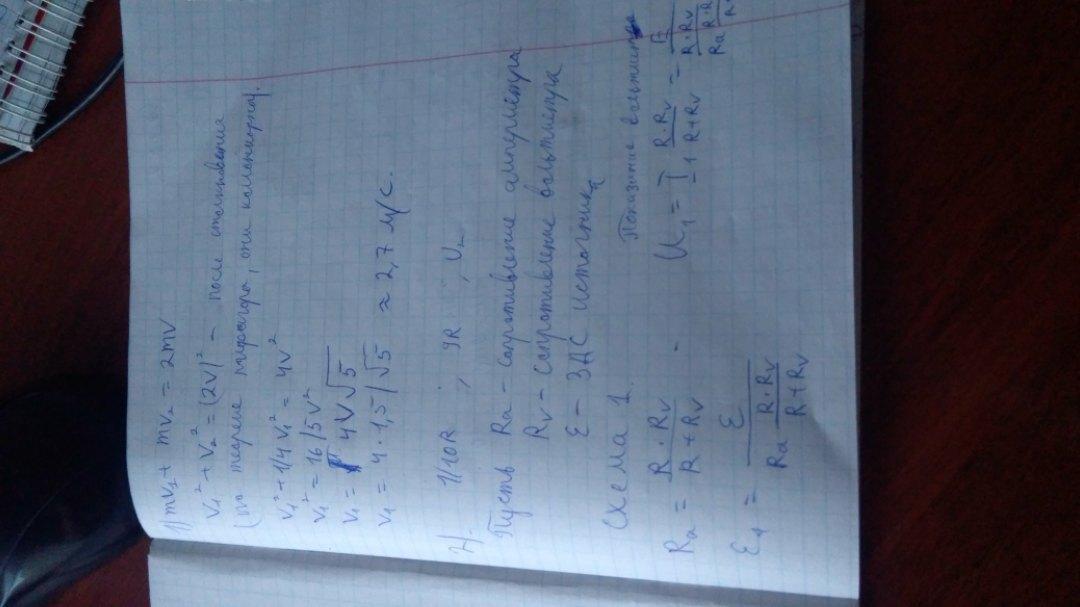 1) mv₁ + mv₂ = 2mv
v₁² + v₂² = (2v)² – после столкновения
(по теореме пифагора, они коллинеарны).
v₁² + 1/4 v₁² = 4v²
v₁² = 16/5v²
v₁ = 4V√5
v₁ = 4 · 1,5/√5 ≈ 2,7 м/с.
1/10R ; 9R , U₂
Пусть Ra – сопротивление амперметра
Rv – сопротивление вольтметра
ε – ЭДС источника
схема 1. Показание
Ra = R·Rv / R+Rv U₁ = I₁ R·Rv / R+Rv =
ε₁ = ε / Ra R·Rv / R+Rv